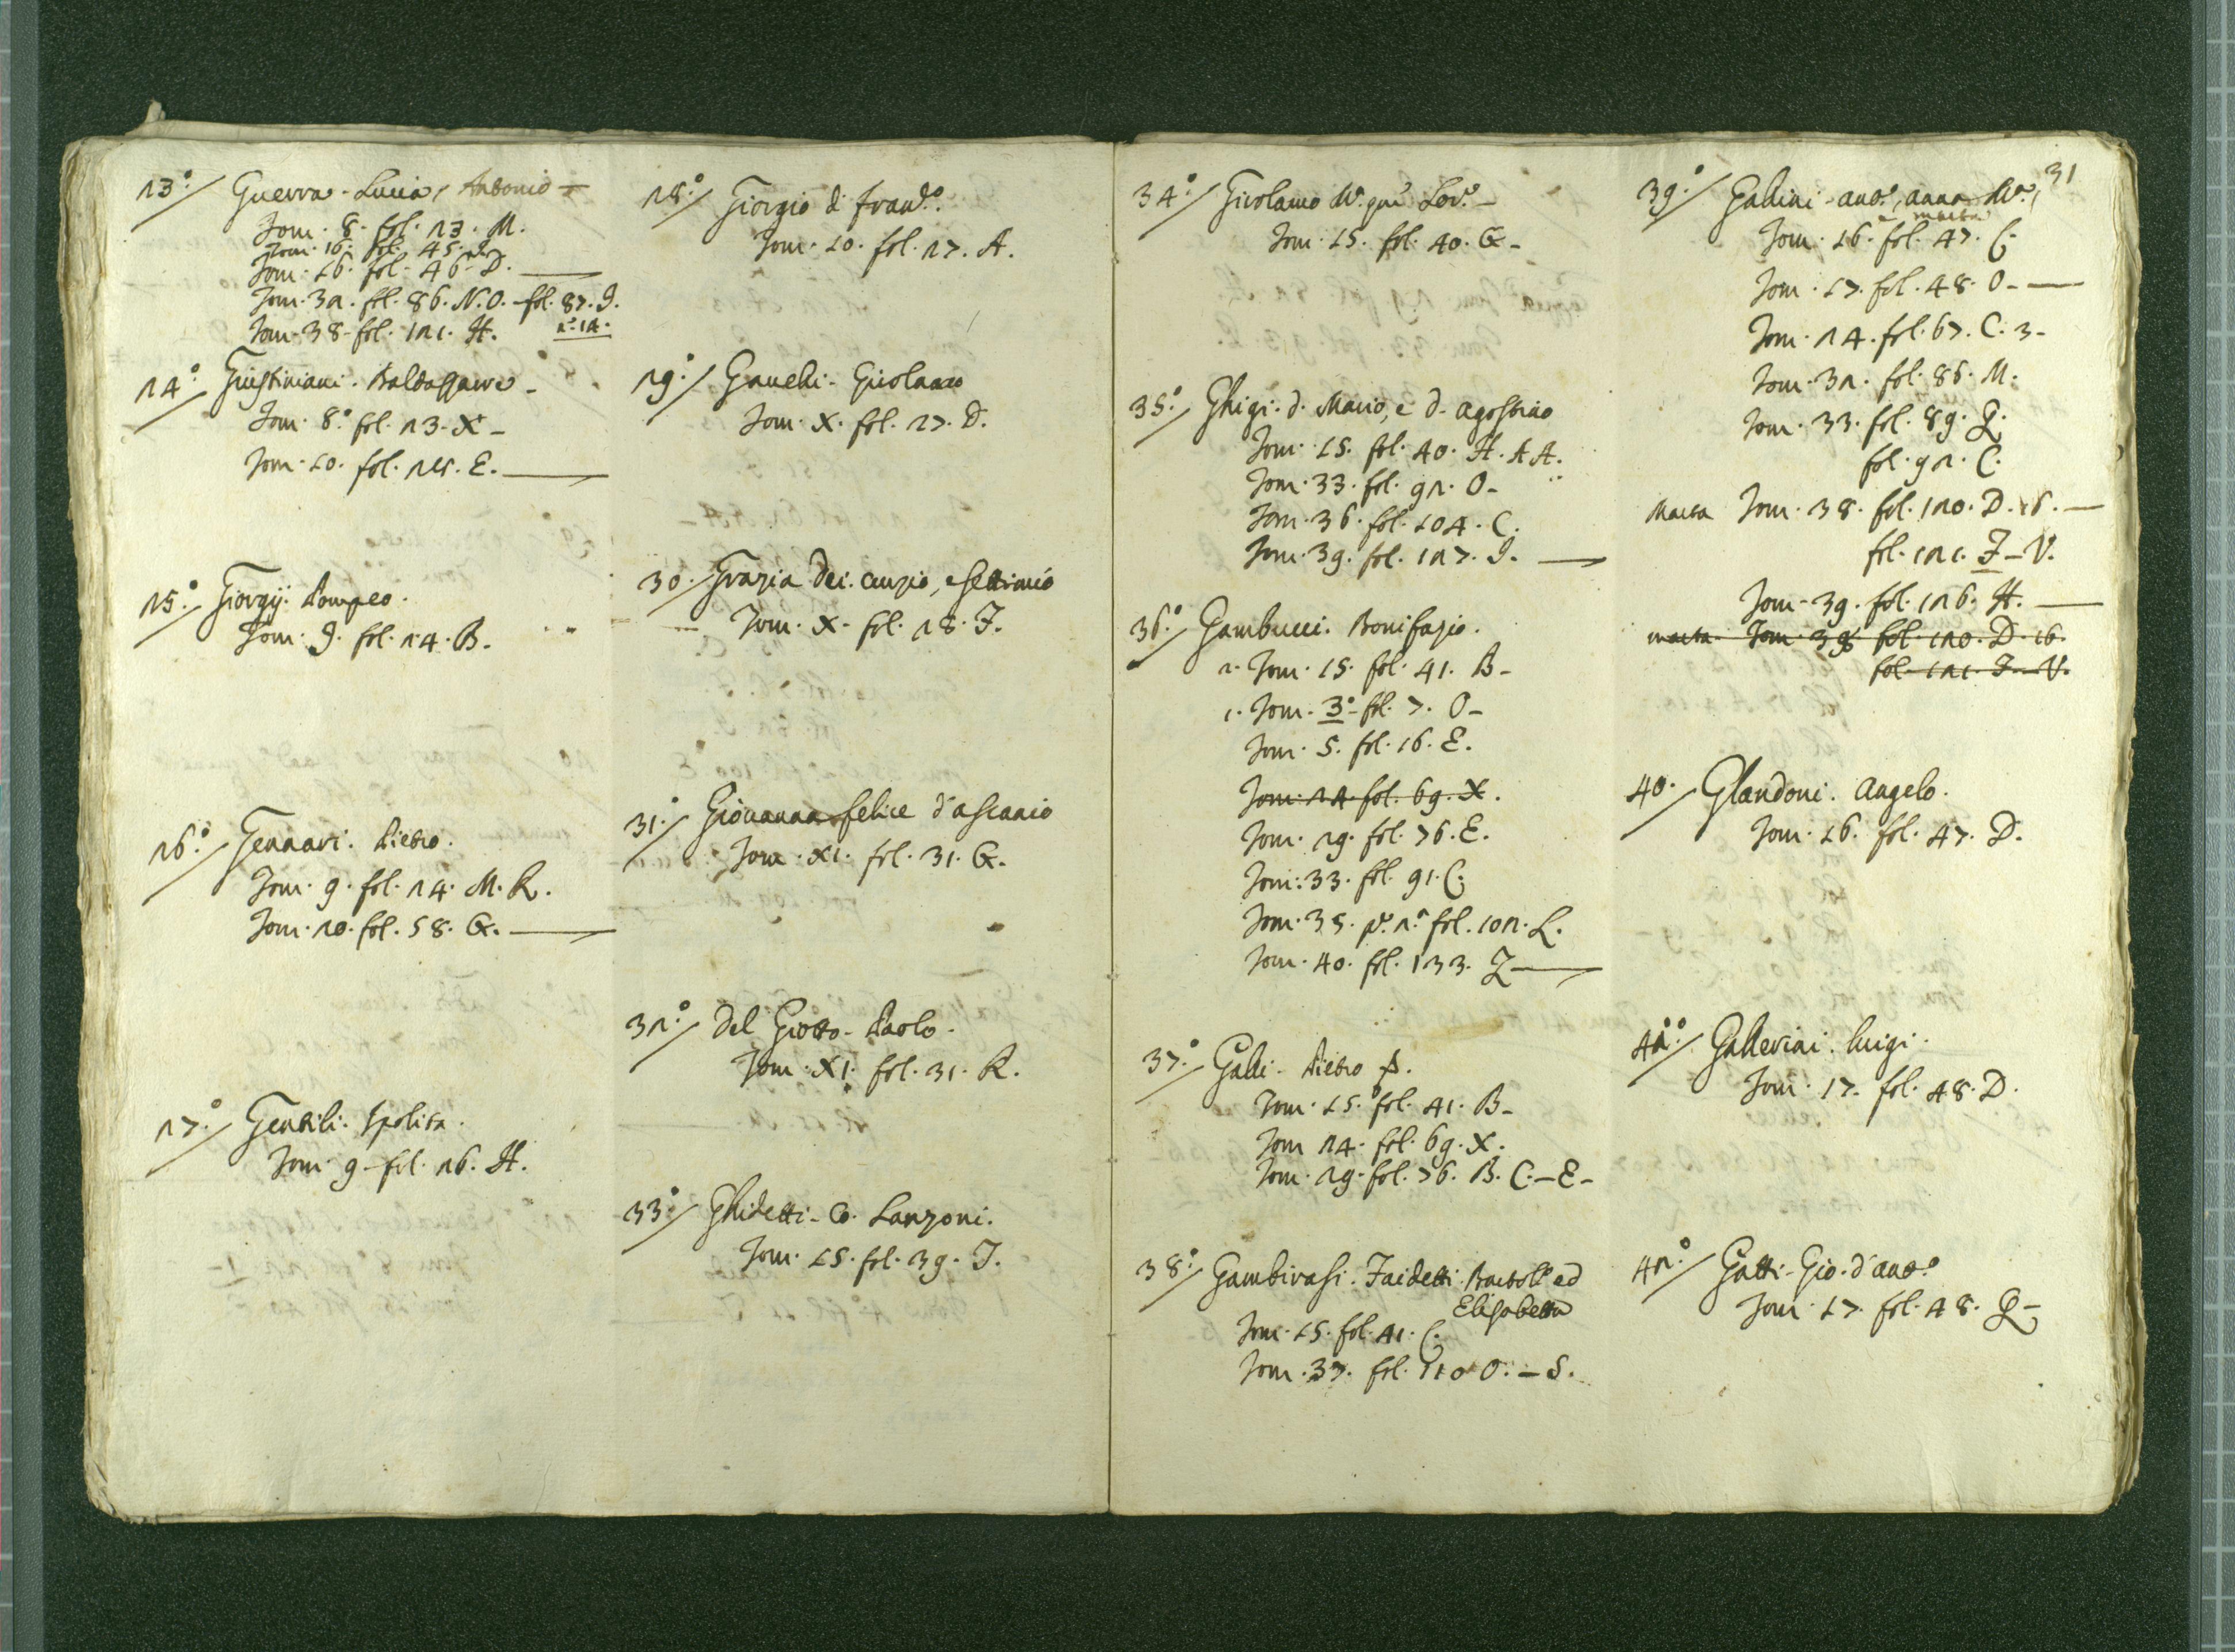 23.° Guerra. Lucia, Antonio
Tom. 8. fol. 23. M.
Tom. 16. fol. 45. I.
Tom. 16. fol. 46. D.
Tom. 32. fol. 86. N.O. - fol. 87. I.
Tom. 38. fol. 121. H.
24.° Giustiniani. Baldassarre -
Tom. 8.° fol. 23. X -
Tom. 10. fol. E.
25.° Giorgij. Pompeo.
Tom. 9. fol. 24. B.
26.° Gennari. Pietro.
Tom. 9. fol. 24. M. R.
Tom. 20. fol. 58. G.
27.° Gentili. Ipolita.
Tom. 9. fol. 26. H.
28.° Giorgio di Fran.co
Tom. 10. fol. 27. A.
29.° Ganelli. Girolamo
Tom. X. fol. 27. D.
30. Grazia Dei. Curzio, e Settimio
Tom. X. fol. 28. F.
31.° Giovanna felice d'Ascanio
Tom. XI. fol. 31. G.
32.° Del Giotto. Paolo.
Tom. XI. fol. 31. R.
33.° Ghidetti. Lanzoni.
Tom. 15. fol. 39. I.
31
34.° Girolamo Lor.°
Tom. 15. fol. 40. G -
35.° Ghigi. d. Mario, e d. Agostino
Tom. 15. fol. 40. H. AA.
Tom. 33. fol. 92. O -
Tom. 36. fol. 104. C.
Tom. 39. fol. 127. I.
36.° Gambucci. Bonifazio.
2. Tom. 15. fol. 41. B -
1. Tom. 3.° fol. 7. O -
Tom. 5. fol. 16. E.
Tom. 24. fol. 69. X.
Tom. 29. fol. 76. E.
Tom. 33. fol. 91. C.
Tom. 35. p.e 2.a fol. 102. L.
Tom. 40. fol. 133. Z
37.° Galli. Pietro P.
Tom. 15. fol. 41. B -
Tom 24. fol. 69. X.
Tom. 29. fol. 76. B. C. - E -
38.° Gambirasi. Faidetti. Bartol.° ed
Elisabetta
Tom. 15. fol. 41. C.
Tom. 37. fol. 110 O. - S.
39.° Gallini. Ant.°, Anna M.a,
e Marta
Tom. 16. fol. 47. C.
Tom. 17. fol. 48. O -
Tom. 24. fol. 67. C. 3 -
Tom. 32. fol. 86. M.
Tom. 33. fol. 89. Q.
fol. 92. C.
Marta Tom. 38. fol. 120. D. 16. -
fol. 121. F - V.
Tom. 39. fol. 126. H.
Marta Tom. 38 fol. 120. D. 16.
fol. 121. F - V.
40. Glandoni. Angelo.
Tom. 16. fol. 47. D.
41.° Gallerini. Luigi.
Tom. 17. fol. 48. D.
42.° Gatti. Gio. d'Ant.°
Tom. 17. fol. 48. Q -